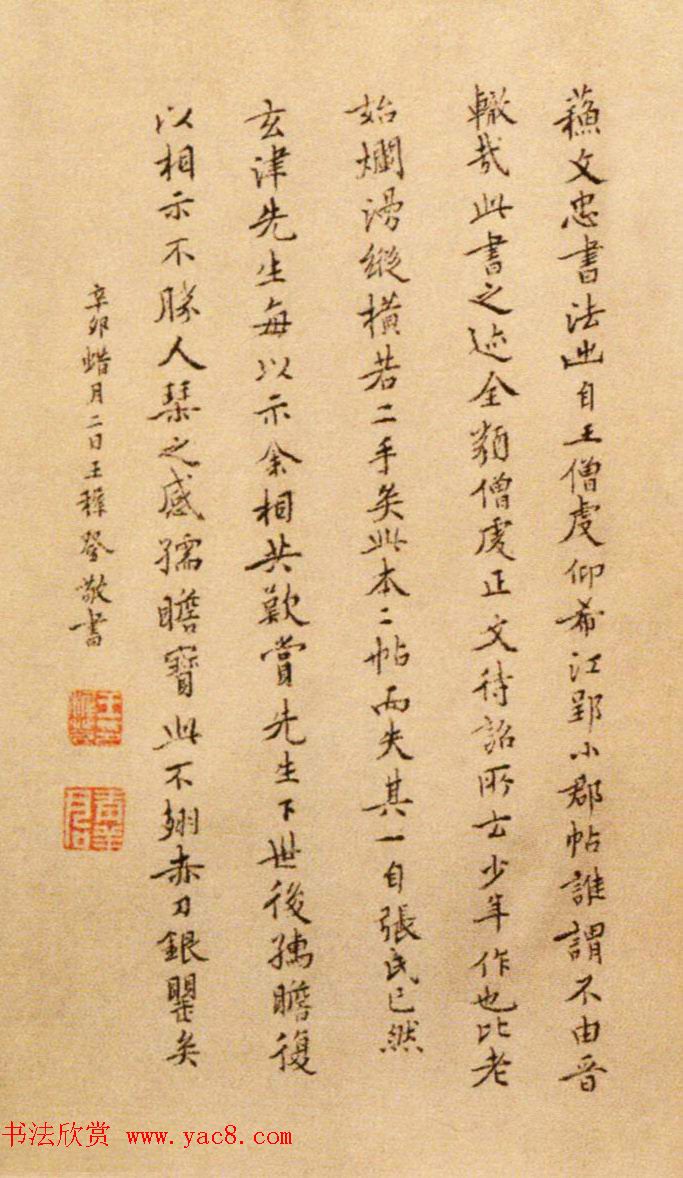 蘓文忠書法出自王僧虔仰希江郢小郡帖誰謂不由晉
轍哉此書之迹全類僧虔正文待詔所云少年作也比老
始爛漫縱橫若二手矣此本二帖而失其一自張氏已然
玄津先生每以示余相共歎賞先生下世後孺瞻復
以相示不勝人琹之感孺瞻寶此不翅赤刀銀罌矣
辛卯蜡月二日王穉登敬書
书法欣赏 www.yac8.com